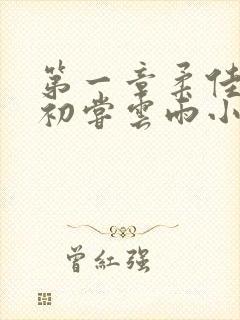 第一章柔佳
初嘗雲雨小
曾紅強